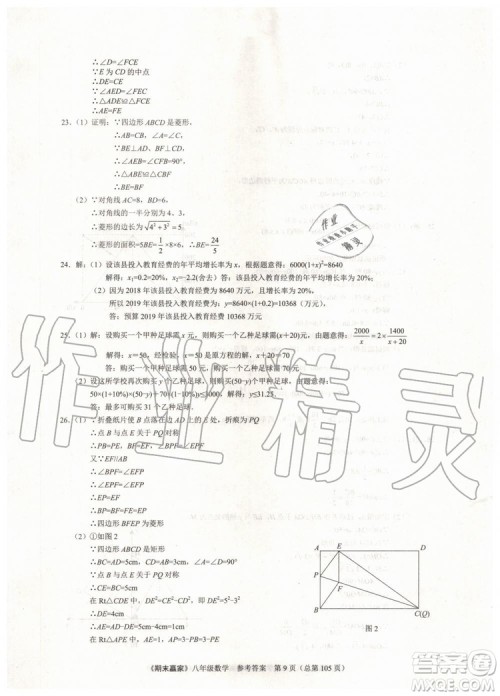 ∴∠D=∠FCE
∵E 为 CD 的中点
∴DE=CE
∵∠AED=∠FEC
∴△ADE≌△FCE
∴AE=FE
23.（1）证明：∵四边形 ABCD 是菱形,
∴AB=CB, ∠A=∠C,
∵BE⊥AD、BF⊥CD,
∴∠AEB=∠CFB=90°,
∴△ABE≌△CBF
∴BE=BF
（2）∵对角线 AC=8, BD=6,
∴对角线的一半分别为 4、3,
∴菱形的边长为√4²+3²=5,
∴菱形的面积=5BE=1/2×8×6, ∴BE=24/5
24. 解：（1）设该县投入教育经费的年平均增长率为 x, 根据题意得: 6000(1+x)²=8640
解得: x₁=0.2=20%, x₂=-2.2(舍去) 答：该县投入教育经费的年平均增长率为 20%
（2）因为 2018 年该县投入教育经费为 8640 万元, 且增长率为 20%,
所以 2019 年该县投入教育经费为: y=8640×(1+0.2)=10368（万元）
答：预算 2019 年该县投入教育经费 10368 万元
25.（1）解：设购买一个甲种足球需 x 元, 则购买一个乙种足球需(x+20)元, 由题意得: 2000/x=2×1400/x+20
解得: x=50, 经检验, x=50 是原方程的解, ∴x+20=70
（2）设这所学校再次购买 y 个乙种足球, 则购买(50-y)个甲种足球, 由题意得:
解得: y≤31.25,
答：最多可购买 31 个乙种足球.
26.（1）∵折叠纸片使 B 点落在边 AD 上的 E 处, 折痕为 PQ
∴点 B 与点 E 关于 PQ 对称
∴PB=PE, BF=EF, ∠BPF=∠EPF
又∵EF//AB
∴∠BPF=∠EFP
∴∠EPF=∠EFP
∴EP=EF
∴BP=BF=EF=EP
∴四边形 BFEP 为菱形
（2）①如图 2
∵四边形 ABCD 是矩形
∴BC=AD=5cm, CD=AB=3cm, ∠A=∠D=90°
∵点 B 与点 E 关于 PQ 对称
∴CE=BC=5cm
在 Rt△CDE 中, DE²=CE²-CD², 即 DE²=5²-3²
∴DE=4cm
∴AE=AD-DE=5cm-4cm=1cm
在 Rt△APE 中, AE=1, AP=3-PB=3-PE
A E D
P F
B C(Q)
图 2
《期末赢家》八年级数学 参考答案 第 9 页（总第 105 页）
作业精灵
作业
精灵